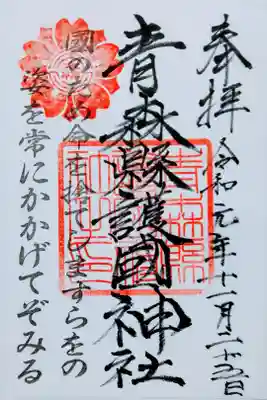 奉拝 令和元年十一月二十五日
青森縣護國神社
國のため命を捨てしますらをの
姿を常にかかげてぞみる